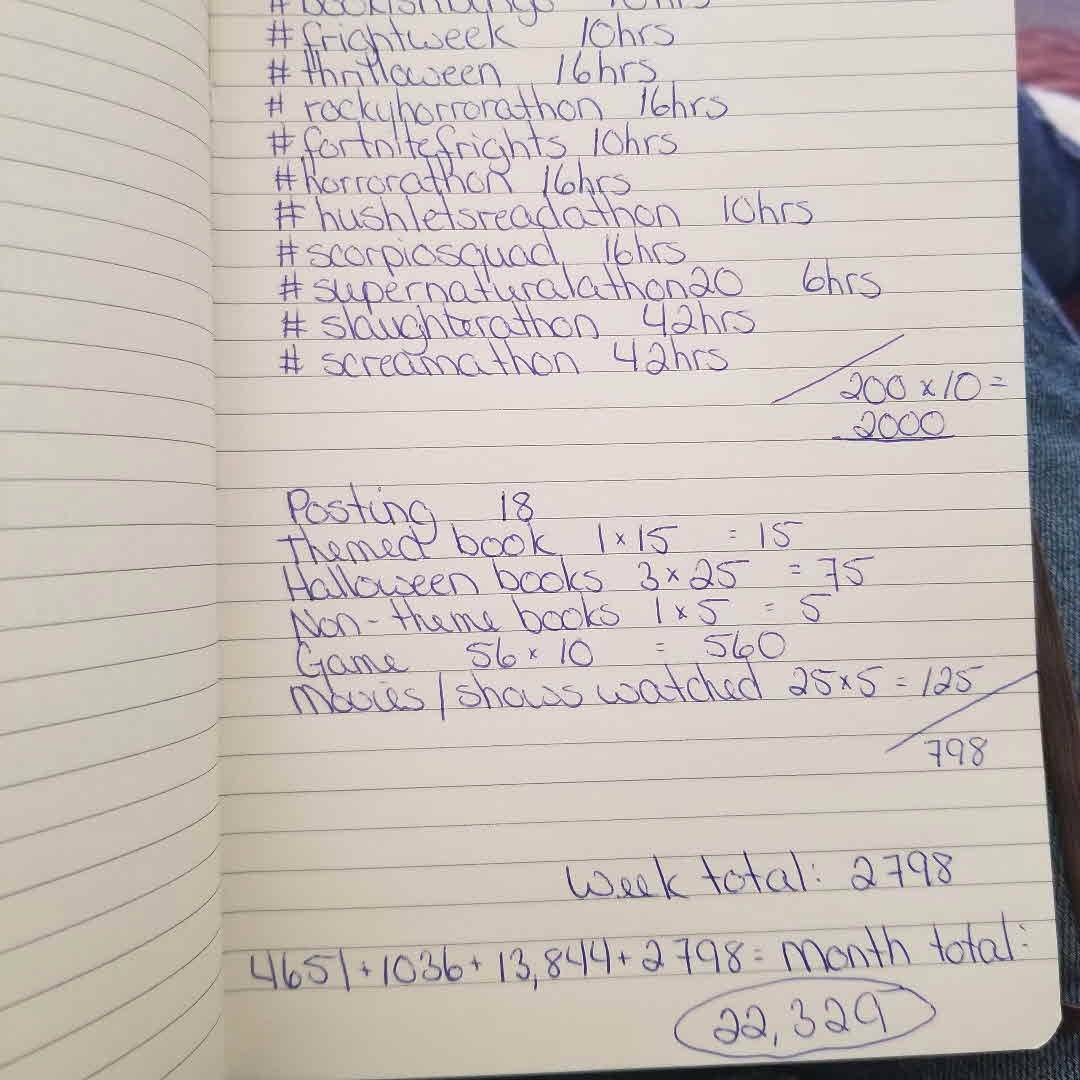 # frightweek 10hrs
# thrilloween 16hrs
# rockyhorrorathon 16hrs
# fortnitefrights 10hrs
# horrorathon 16hrs
# hushletsreadathon 10hrs
# scorpiosquad 16hrs
# supernaturalathon20 6hrs
# slaughterathon 42hrs
# screamathon 42hrs
200 x 10 =
2000
Posting 18
Themed book 1 x 15 = 15
Halloween books 3 x 25 = 75
Non-theme books 1 x 5 = 5
Game 56 x 10 = 560
Movies / shows watched 25 x 5 = 125
798
Week total: 2798
4651 + 1036 + 13,844 + 2798 = Month total:
22,329